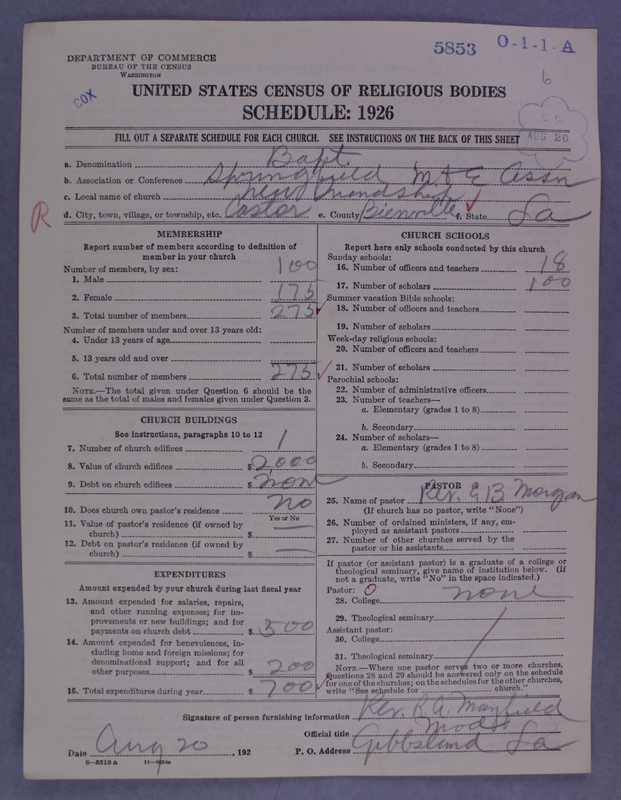 5853 O-1-1-A
6
DEPARTMENT OF COMMERCE
BUREAU OF THE CENSUS
WASHINGTON
COX
UNITED STATES CENSUS OF RELIGIOUS BODIES
SCHEDULE: 1926
AUG 26
FILL OUT A SEPARATE SCHEDULE FOR EACH CHURCH. SEE INSTRUCTIONS ON THE BACK OF THIS SHEET
a. Denomination Bapt.
b. Association or Conference Springfield M & E Assn
c. Local name of church New Friendship
d. City, town, village, or township, etc. Castor e. County Bienville f. State La
R
MEMBERSHIP
Report number of members according to definition of member in your church
Number of members, by sex:
1. Male 100
2. Female 175
3. Total number of members 275
Number of members under and over 13 years old:
4. Under 13 years of age
5. 13 years old and over
6. Total number of members 275
NOTE.—The total given under Question 6 should be the
same as the total of males and females given under Question 3.
CHURCH BUILDINGS
See instructions, paragraphs 10 to 12
7. Number of church edifices 1
8. Value of church edifices $ 2000
9. Debt on church edifices $ none
10. Does church own pastor's residence no
Yes or No
11. Value of pastor's residence (if owned by
church) $ —
12. Debt on pastor's residence (if owned by
church) $ —
EXPENDITURES
Amount expended by your church during last fiscal year
13. Amount expended for salaries, repairs,
and other running expenses; for im-
provements or new buildings; and for
payments on church debt $ 500
14. Amount expended for benevolences, in-
cluding home and foreign missions; for
denominational support; and for all
other purposes $ 200
15. Total expenditures during year $ 700
CHURCH SCHOOLS
Report here only schools conducted by this church
Sunday schools:
16. Number of officers and teachers 18
17. Number of scholars 100
Summer vacation Bible schools:
18. Number of officers and teachers
19. Number of scholars
Week-day religious schools:
20. Number of officers and teachers
21. Number of scholars
Parochial schools:
22. Number of administrative officers
23. Number of teachers—
a. Elementary (grades 1 to 8)
b. Secondary
24. Number of scholars—
a. Elementary (grades 1 to 8)
b. Secondary
PASTOR
25. Name of pastor Rev. E B Morgan
(If church has no pastor, write "None")
26. Number of ordained ministers, if any, em-
ployed as assistant pastors
27. Number of other churches served by the
pastor or his assistants
If pastor (or assistant pastor) is a graduate of a college or
theological seminary, give name of institution below. (If
not a graduate, write "No" in the space indicated.)
Pastor: O
28. College none
29. Theological seminary
Assistant pastor:
30. College
31. Theological seminary
NOTE.—Where one pastor serves two or more churches,
Questions 28 and 29 should be answered only on the schedule
for one of the churches; on the schedules for the other churches,
write "See schedule for church."
Signature of person furnishing information Rev. R. A. Mayfield
Official title Mod
Date Aug 20, 192 P. O. Address Gibbsland La
8-5518 a